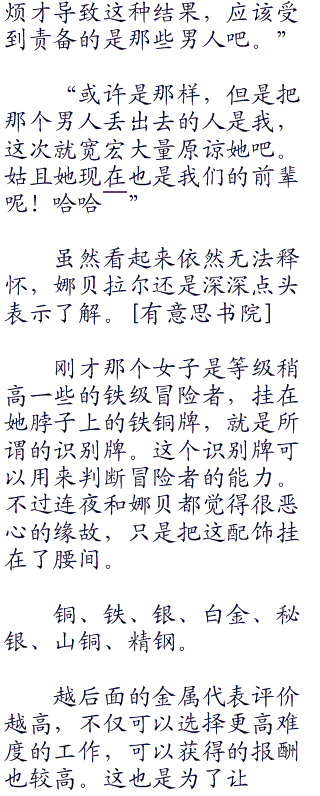 烦才导致这种结果，应该受
到责备的是那些男人吧。”
“或许是那样，但是把
那个男人丢出去的人是我，
这次就宽宏大量原谅她吧。
姑且她现在也是我们的前辈
呢！哈哈——”
虽然看起来依然无法释
怀，娜贝拉尔还是深深点头
表示了解。[有意思书院]
刚才那个女子是等级稍
高一些的铁级冒险者，挂在
她脖子上的铁铜牌，就是所
谓的识别牌。这个识别牌可
以用来判断冒险者的能力。
不过连夜和娜贝都觉得很恶
心的缘故，只是把这配饰挂
在了腰间。
铜、铁、银、白金、秘
银、山铜、精钢。
越后面的金属代表评价
越高，不仅可以选择更高难
度的工作，可以获得的报酬
也较高。这也是为了让